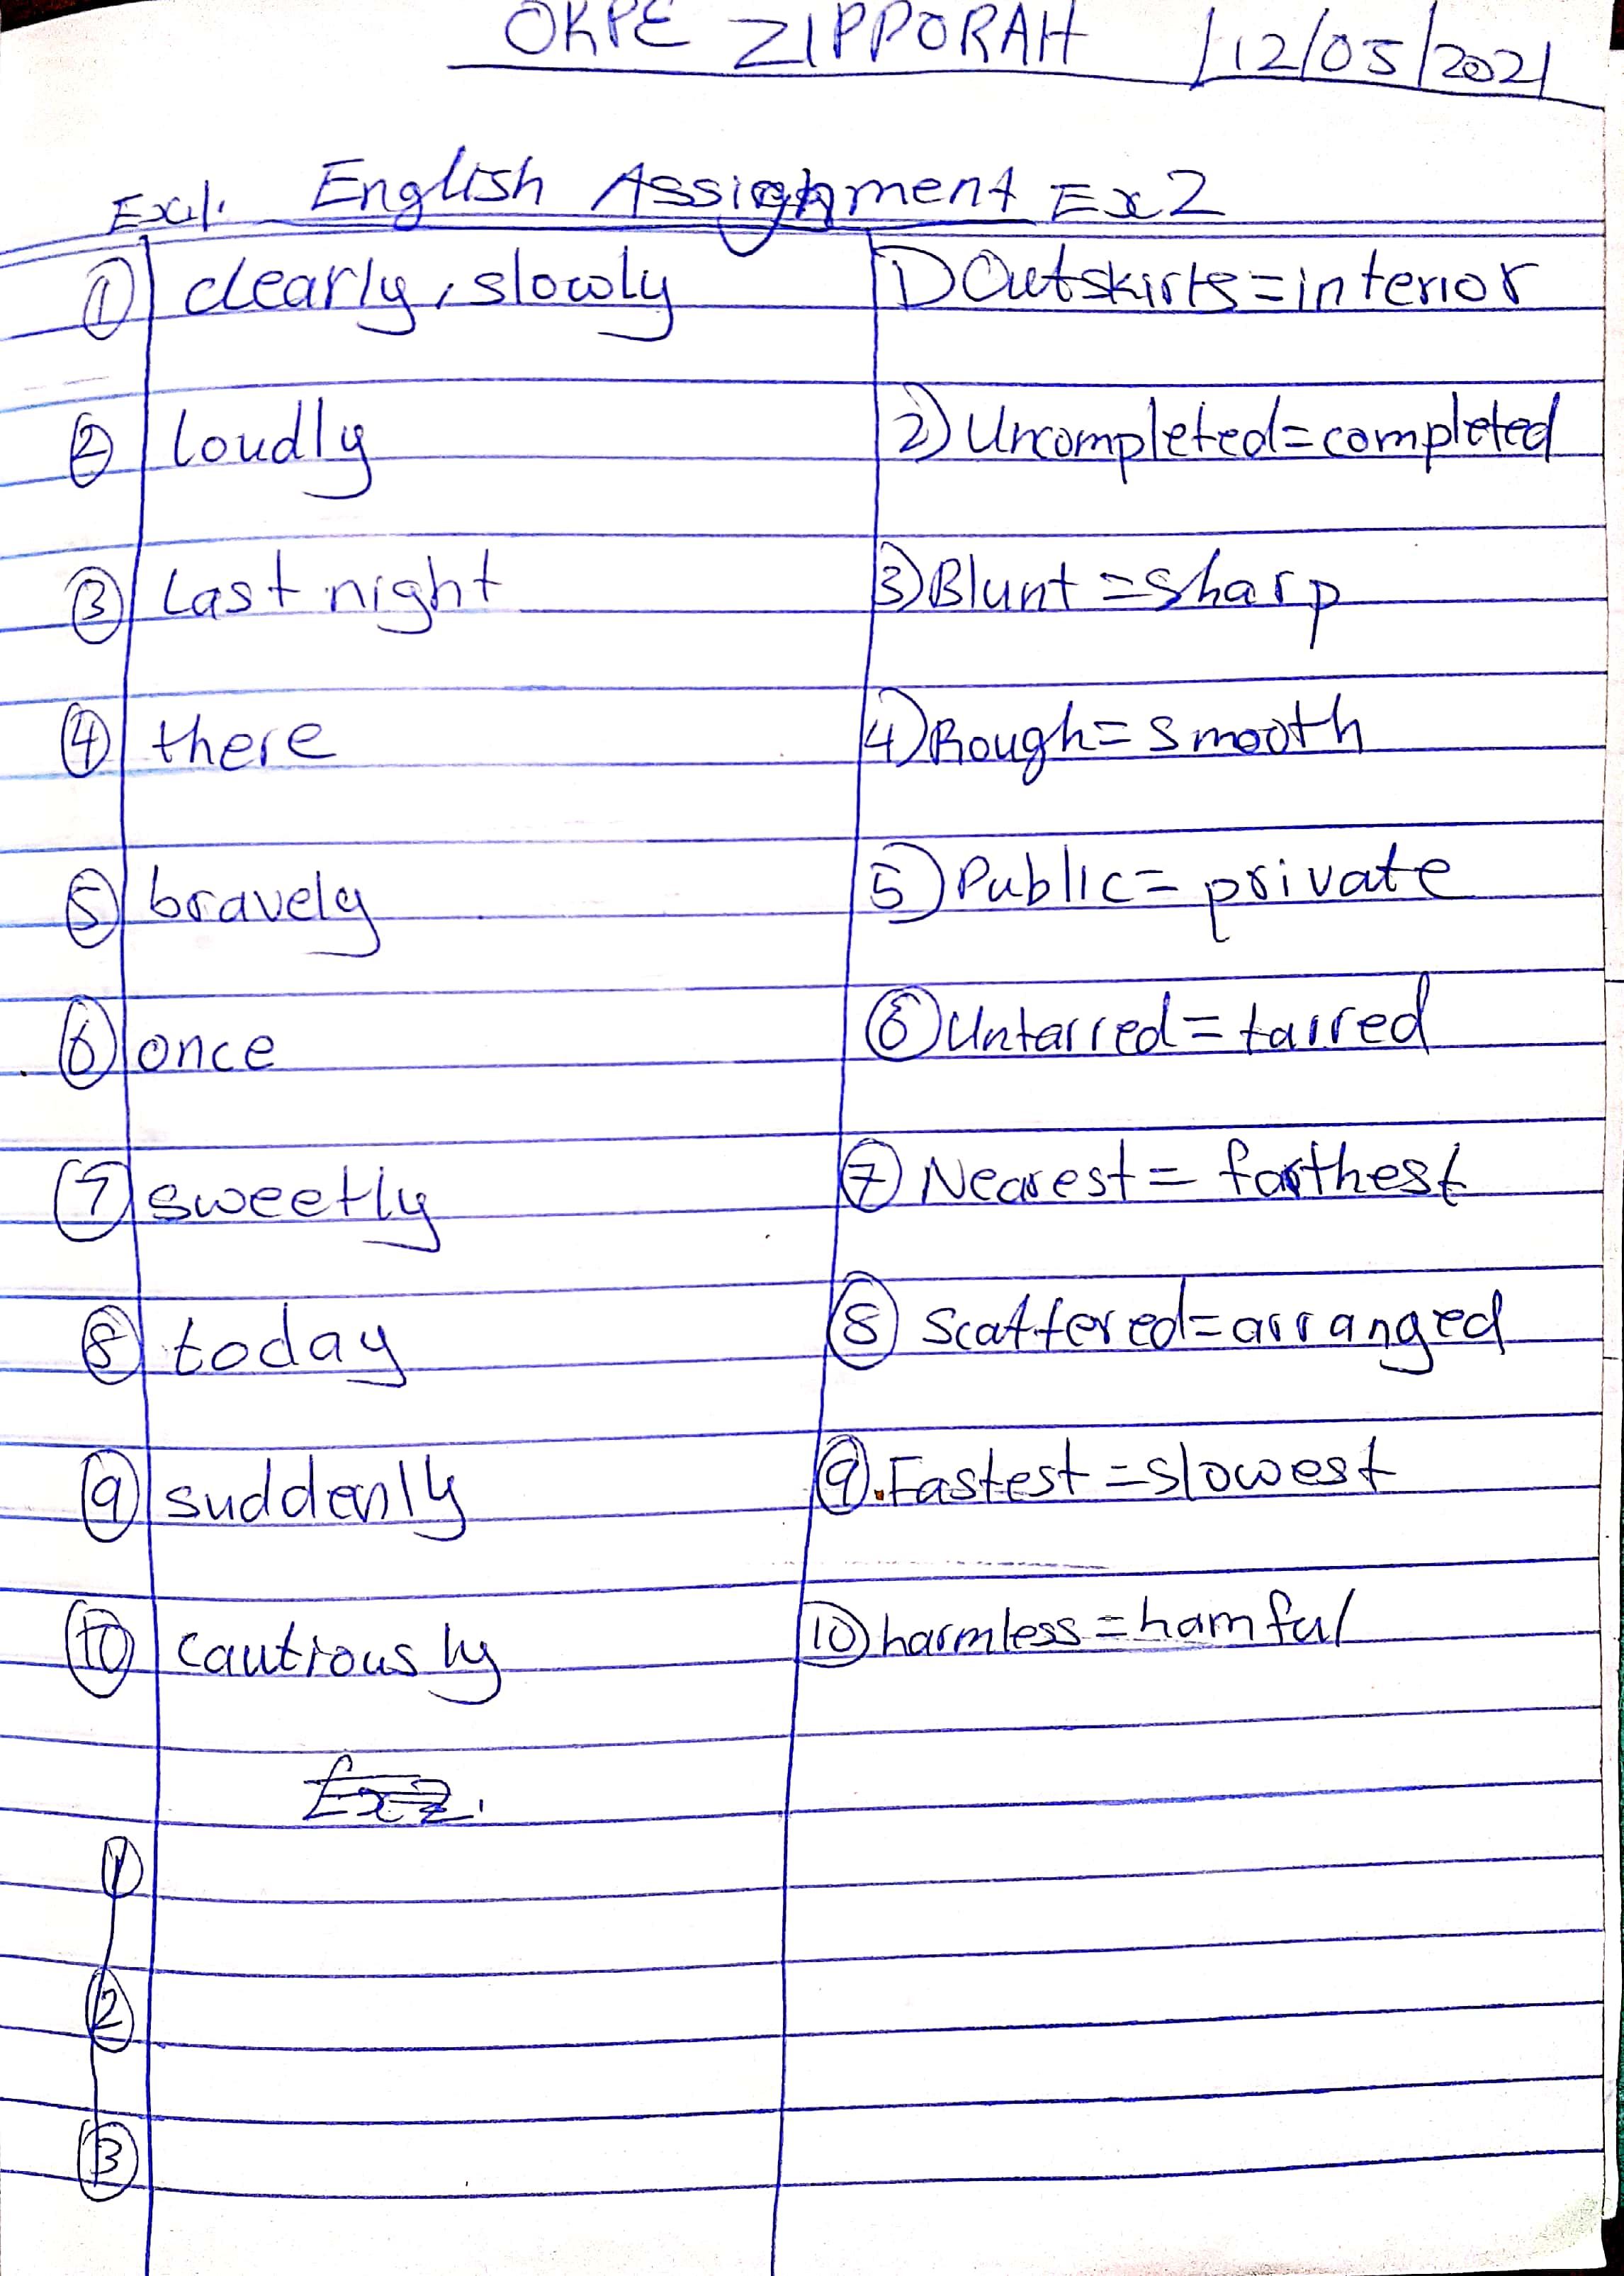 OKPE ZIPPORAH /12/05/2021
Ex1. English Assignment Ex2
① clearly, slowly
② loudly
③ last night
④ there
⑤ bravely
⑥ once
⑦ sweetly
⑧ today
⑨ suddenly
⑩ cautiously
Ex2.
①
②
③
1) Outskirts = interior
2) Uncompleted = completed
3) Blunt = sharp
4) Rough = smooth
5) Public = private
⑥ Untarred = tarred
⑦ Nearest = farthest
⑧ Scattered = arranged
⑨. Fastest = slowest
⑩ harmless = hamful